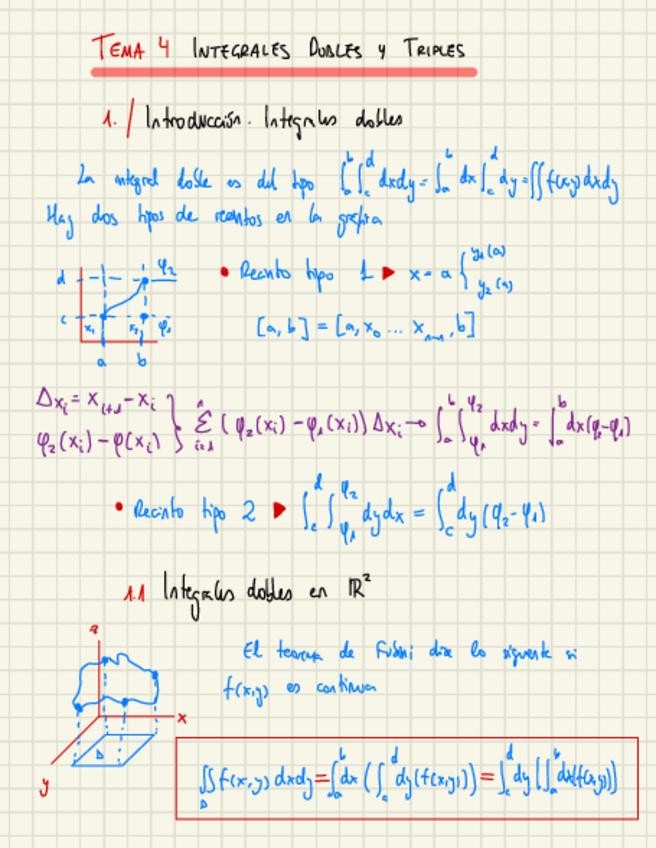 TEMA 4 INTEGRALES DOBLES Y TRIPLES
1. / Introducción. Integrales dobles
La integral doble es del tipo ∫_a^b ∫_c^d dxdy = ∫_a^b dx ∫_c^d dy = ∬ f(x,y) dxdy
Hay dos tipos de recintos en la gráfica
d φ2
c x1 x2 φ1
a b
• Recinto tipo 1 ▶ x = a { y1(a) y2(a)
[a, b] = [a, x0 ... xn-1, b]
Δxi = xi+1 - xi
φ2(xi) - φ(xi) } Σ_{i=1}^n (φ2(xi) - φ1(xi)) Δxi → ∫_a^b ∫_φ1^φ2 dxdy = ∫_a^b dx(φ2-φ1)
• Recinto tipo 2 ▶ ∫_c^d ∫_φ1^φ2 dydx = ∫_c^d dy (φ2 - φ1)
1.1 Integrales dobles en ℝ²
El teorema de Fubini dice lo siguiente si
f(x,y) es continua
z
x
D
y
∬_D f(x,y) dxdy = ∫_a^b dx (∫_c^d dy(f(x,y))) = ∫_c^d dy (∫_a^b dx(f(x,y)))